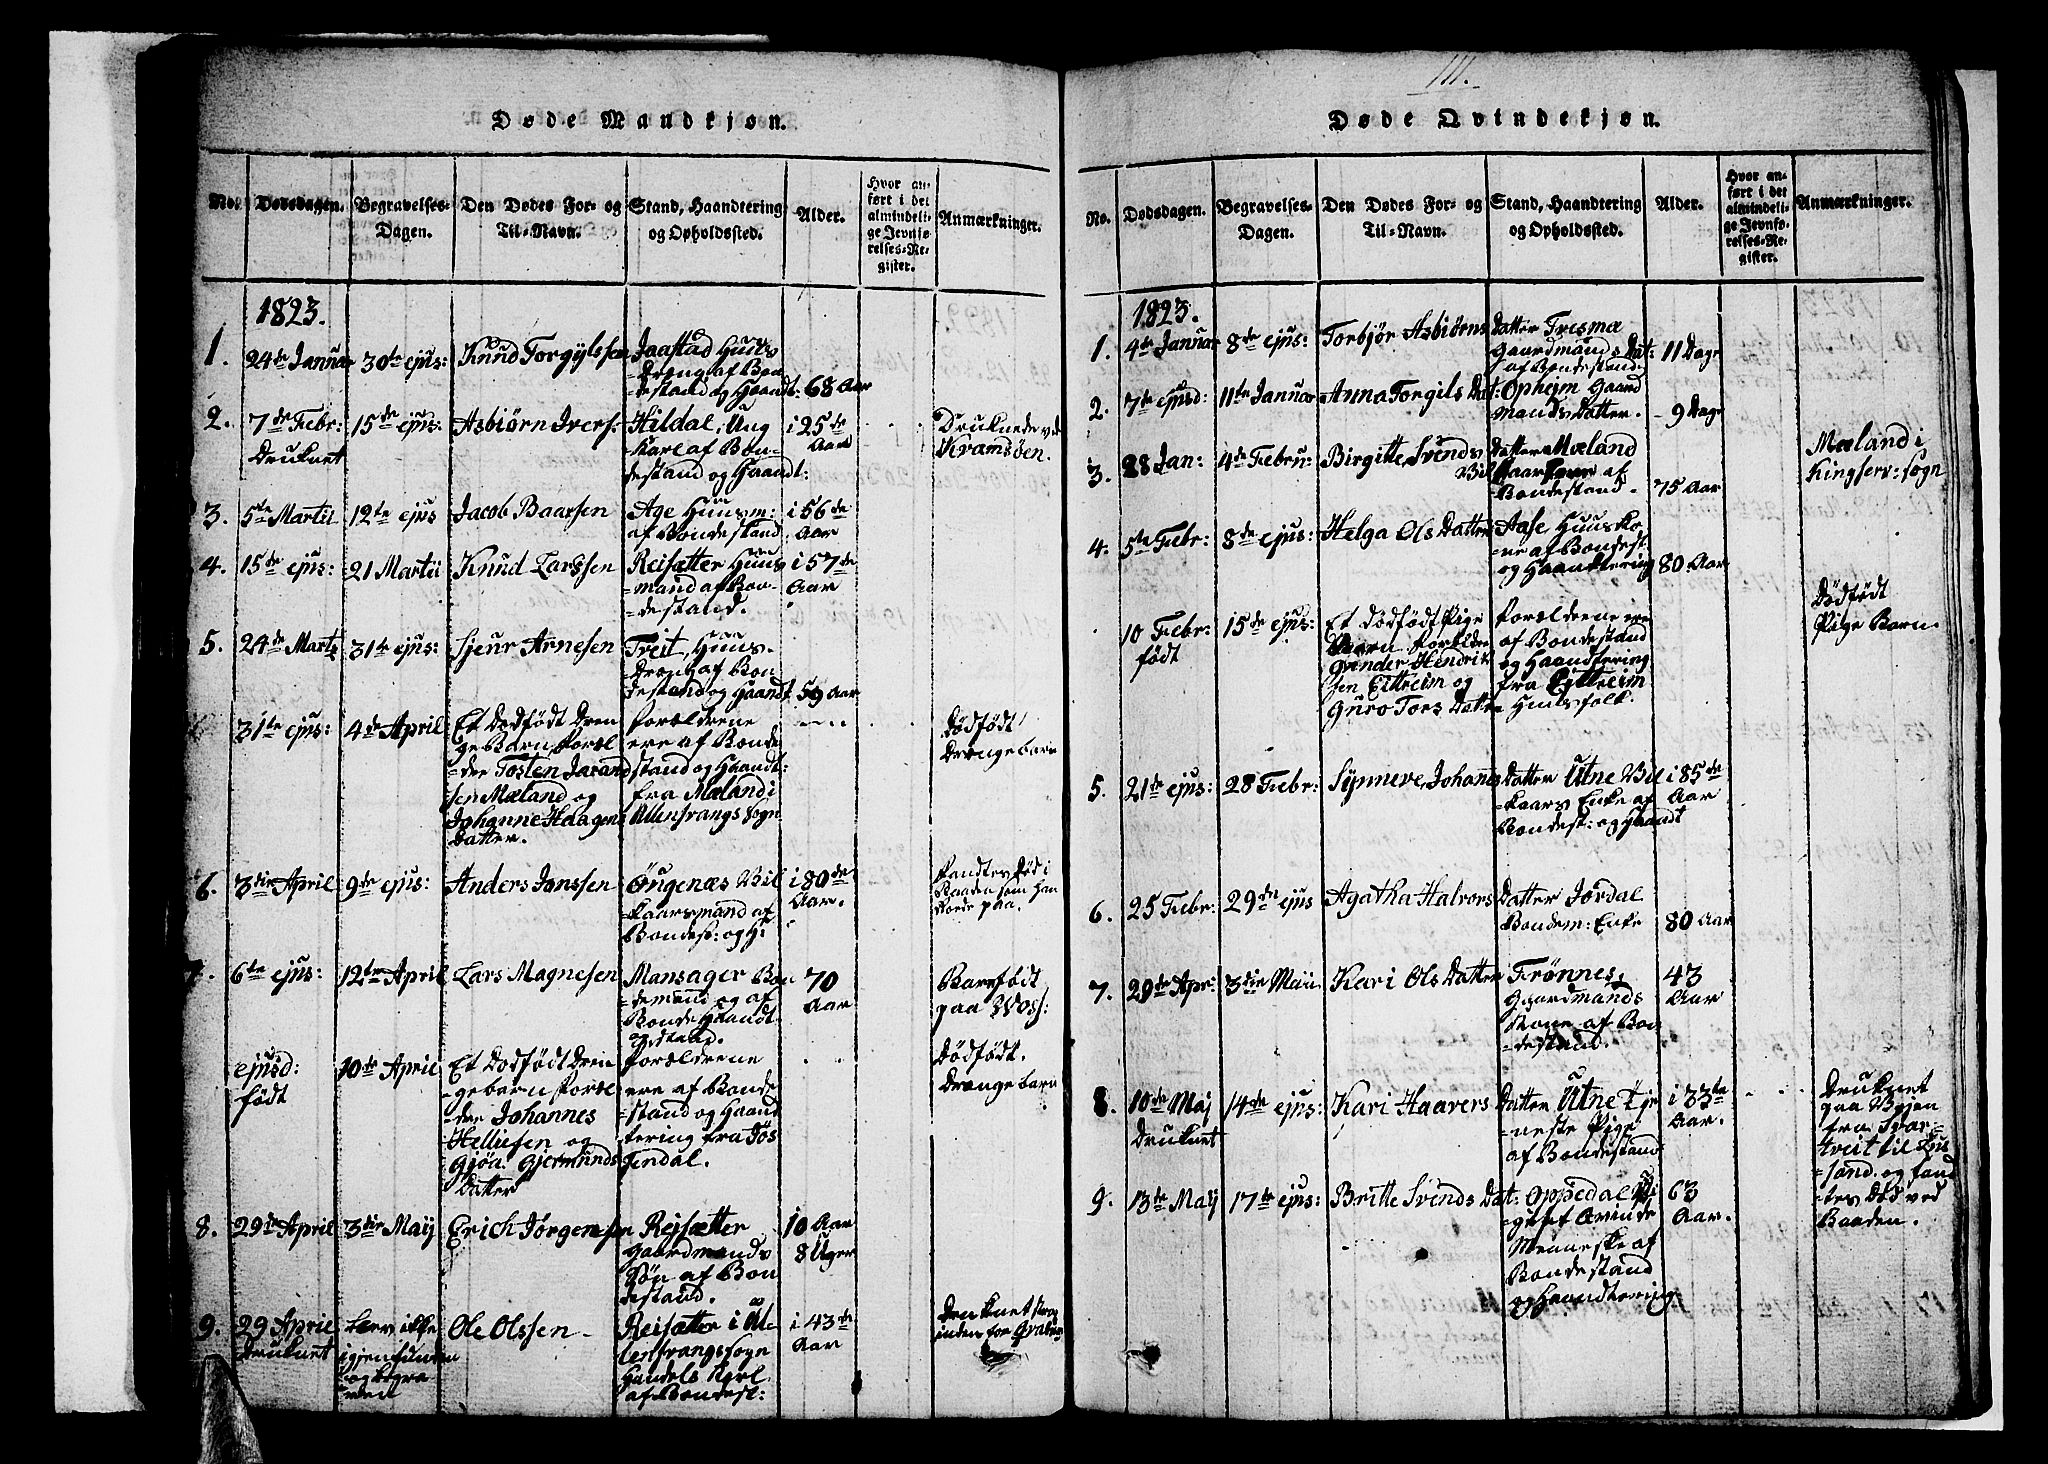 Døde Mandkjøn.
No.
Dødsdagen.
Begravelses-
Dagen.
Den Dødes For- og
Til-Navn.
Stand, Haandtering
og Opholdssted.
Alder.
Hvor an-
ført i det
almindeli-
ge Jevnfø-
relses-Re-
gister.
Anmærkninger.
1823.
1.
24de Januar
30te ejus:
Knud Torgylssen
Jaastad Huus
-Dreng af Bon
destand og Haandt:
68 Aar
2.
7de Febr:
Druknet
15de ejus:
Asbiørn Ivers:
Hildal, Ung
Karl af Bon-
destand og Haandt:
i 25de
Aar
Druknede ved
Kramsøen.
3.
5te Martii
12te ejus
Jacob Baarsen
Age Huusm:
af Bondestand.
i 56de
Aar
4.
15de ejus:
21 Martii
Knud Larssen
Reisætter Huus
mand af Bon-
destand.
i 57de
Aar
5.
24de Marts
31te ejus:
Sjeur Arnesen
Treit, Huus-
Dreng af Bon
destand og Haandt
59 Aar
31te ejus:
4de April
Et Dødfødt Dren
ge Barn Foræl
-dre Tosten Jarand
sen Mæland og
Johanne Haagens
Datter.
Forældrene
ere af Bonde
stand og Haandt:
fra Mæland i
Ullensvangs Sogn
Dødfødt
Drengebarn
6.
3die April
9de ejus:
Anders Jonssen
Øugenæs Vil
kaarsmand af
Bondest: og H:
i 80de
Aar.
Fandtes Død i
Baaden som han
Roede paa.
7.
6te ejus:
12te April
Lars Magnesen
Mansager Bon
demand og af
Bonde Haandt
og stand.
70
Aar
Barnfødt
paa Voss:
ejusd:
født
10de April
Et Dødfødt Dren
gebarn Foræl
dre Johannes
Helliesen og
Gjøa Gjermunds
Datter
Forældrene
ere af Bonde
-stand og Haand
tering fra Jøs
sendal.
Dødfødt.
Drengebarn
8.
29de April
3die Maij
Erich Jørgensen
Reisætter
Gaardmands
Søn af Bon
destand.
10 Aar
8 Uger
9.
29 April
Druknet
blev ikke
igjenfunden
og begra
ven
Ole Olssen
Reisætter i Ul
lensvangs Sogn
Handels Karl
af Bondest:
i 43de
Aar
Druknet strax
inden for
111.
Døde Qvindekjøn.
No.
Dødsdagen.
Begravelses-
Dagen.
Den Dødes For- og
Til-Navn.
Stand, Haandtering
og Opholdssted.
Alder.
Hvor an-
ført i det
almindeli-
ge Jevnfø-
relses-Re-
gister.
Anmærkninger.
1823.
1.
4de Januar
8de ejus:
Torbjør Asbiørns
Datter Tresmæ
Gaardmands Dat:
af Bondestand
11 Dage
2.
7de ejusd:
11te Januar
Anna Torgils Dat:
Opheim Gaard
mands Datter.
9 Dage
3.
28 Jan:
4de Febru:
Birgitte Svends
Datter Mæland
Vil
kaars af
Bondestand.
75 Aar
Mæland i
Kingserv: Sogn
4.
5te Febr:
8de ejus:
Helga Ols Datter
Aase Huusko
ne af Bondest:
og Haandtering
80 Aar
10 Febr:
født
15de ejus:
Et Dødfødt Pige
Barn Forældre
Hendrik
sen Eittreim og
Guro Tors Datter
Forældrene ere
af Bondestand
og Haandtering
fra Eittreim
Huusfolk.
Dødfødt
Pige Barn.
5.
21de ejus:
28 Febr:
Synneve Johannes
Datter Utne Vil
kaars Enke af
Bondest: og Haandt
i 85de
Aar
6.
25 Febr:
29de ejus
Agatha Halvors
Datter Jordal
Bondem: Enke
80 Aar
7.
29de Apr:
3die Maii
Kari Ols Datter
Frønnes,
Gaardmands
Kone af Bon
destand.
43
Aar
8.
10de Maj
Druknet
14de ejus:
Kari Haavers
Datter Utne Tje
neste Pige
af Bondestand
i 33te
Aar.
Druknet
paa Vejen
fra Tvar-
treit til
sand og fand
tes Død ved
Baaden.
9.
13de Maij
17de ejus:
Britte Svends Dat:
Oppedal
gift Qvinde
Menneske af
Bondestand
og Haandtering
63
Aar.